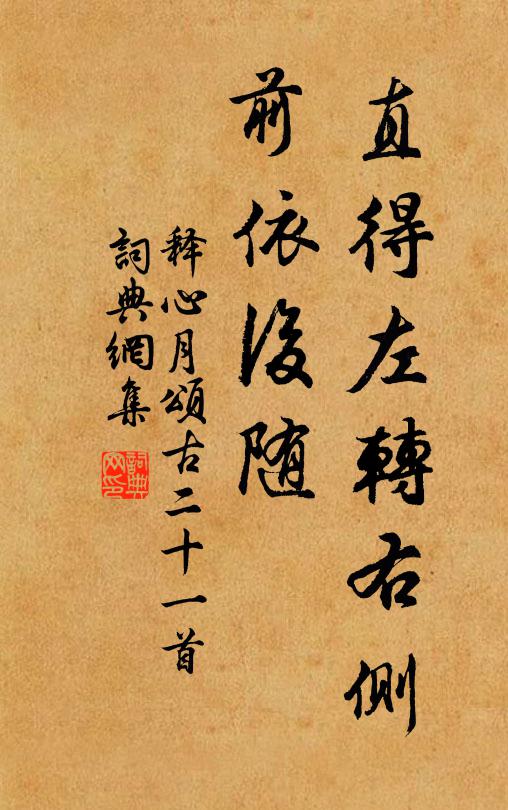 直得左轉右側
前依後随
释心月頌古二十一首
詞典網集
詞典網印